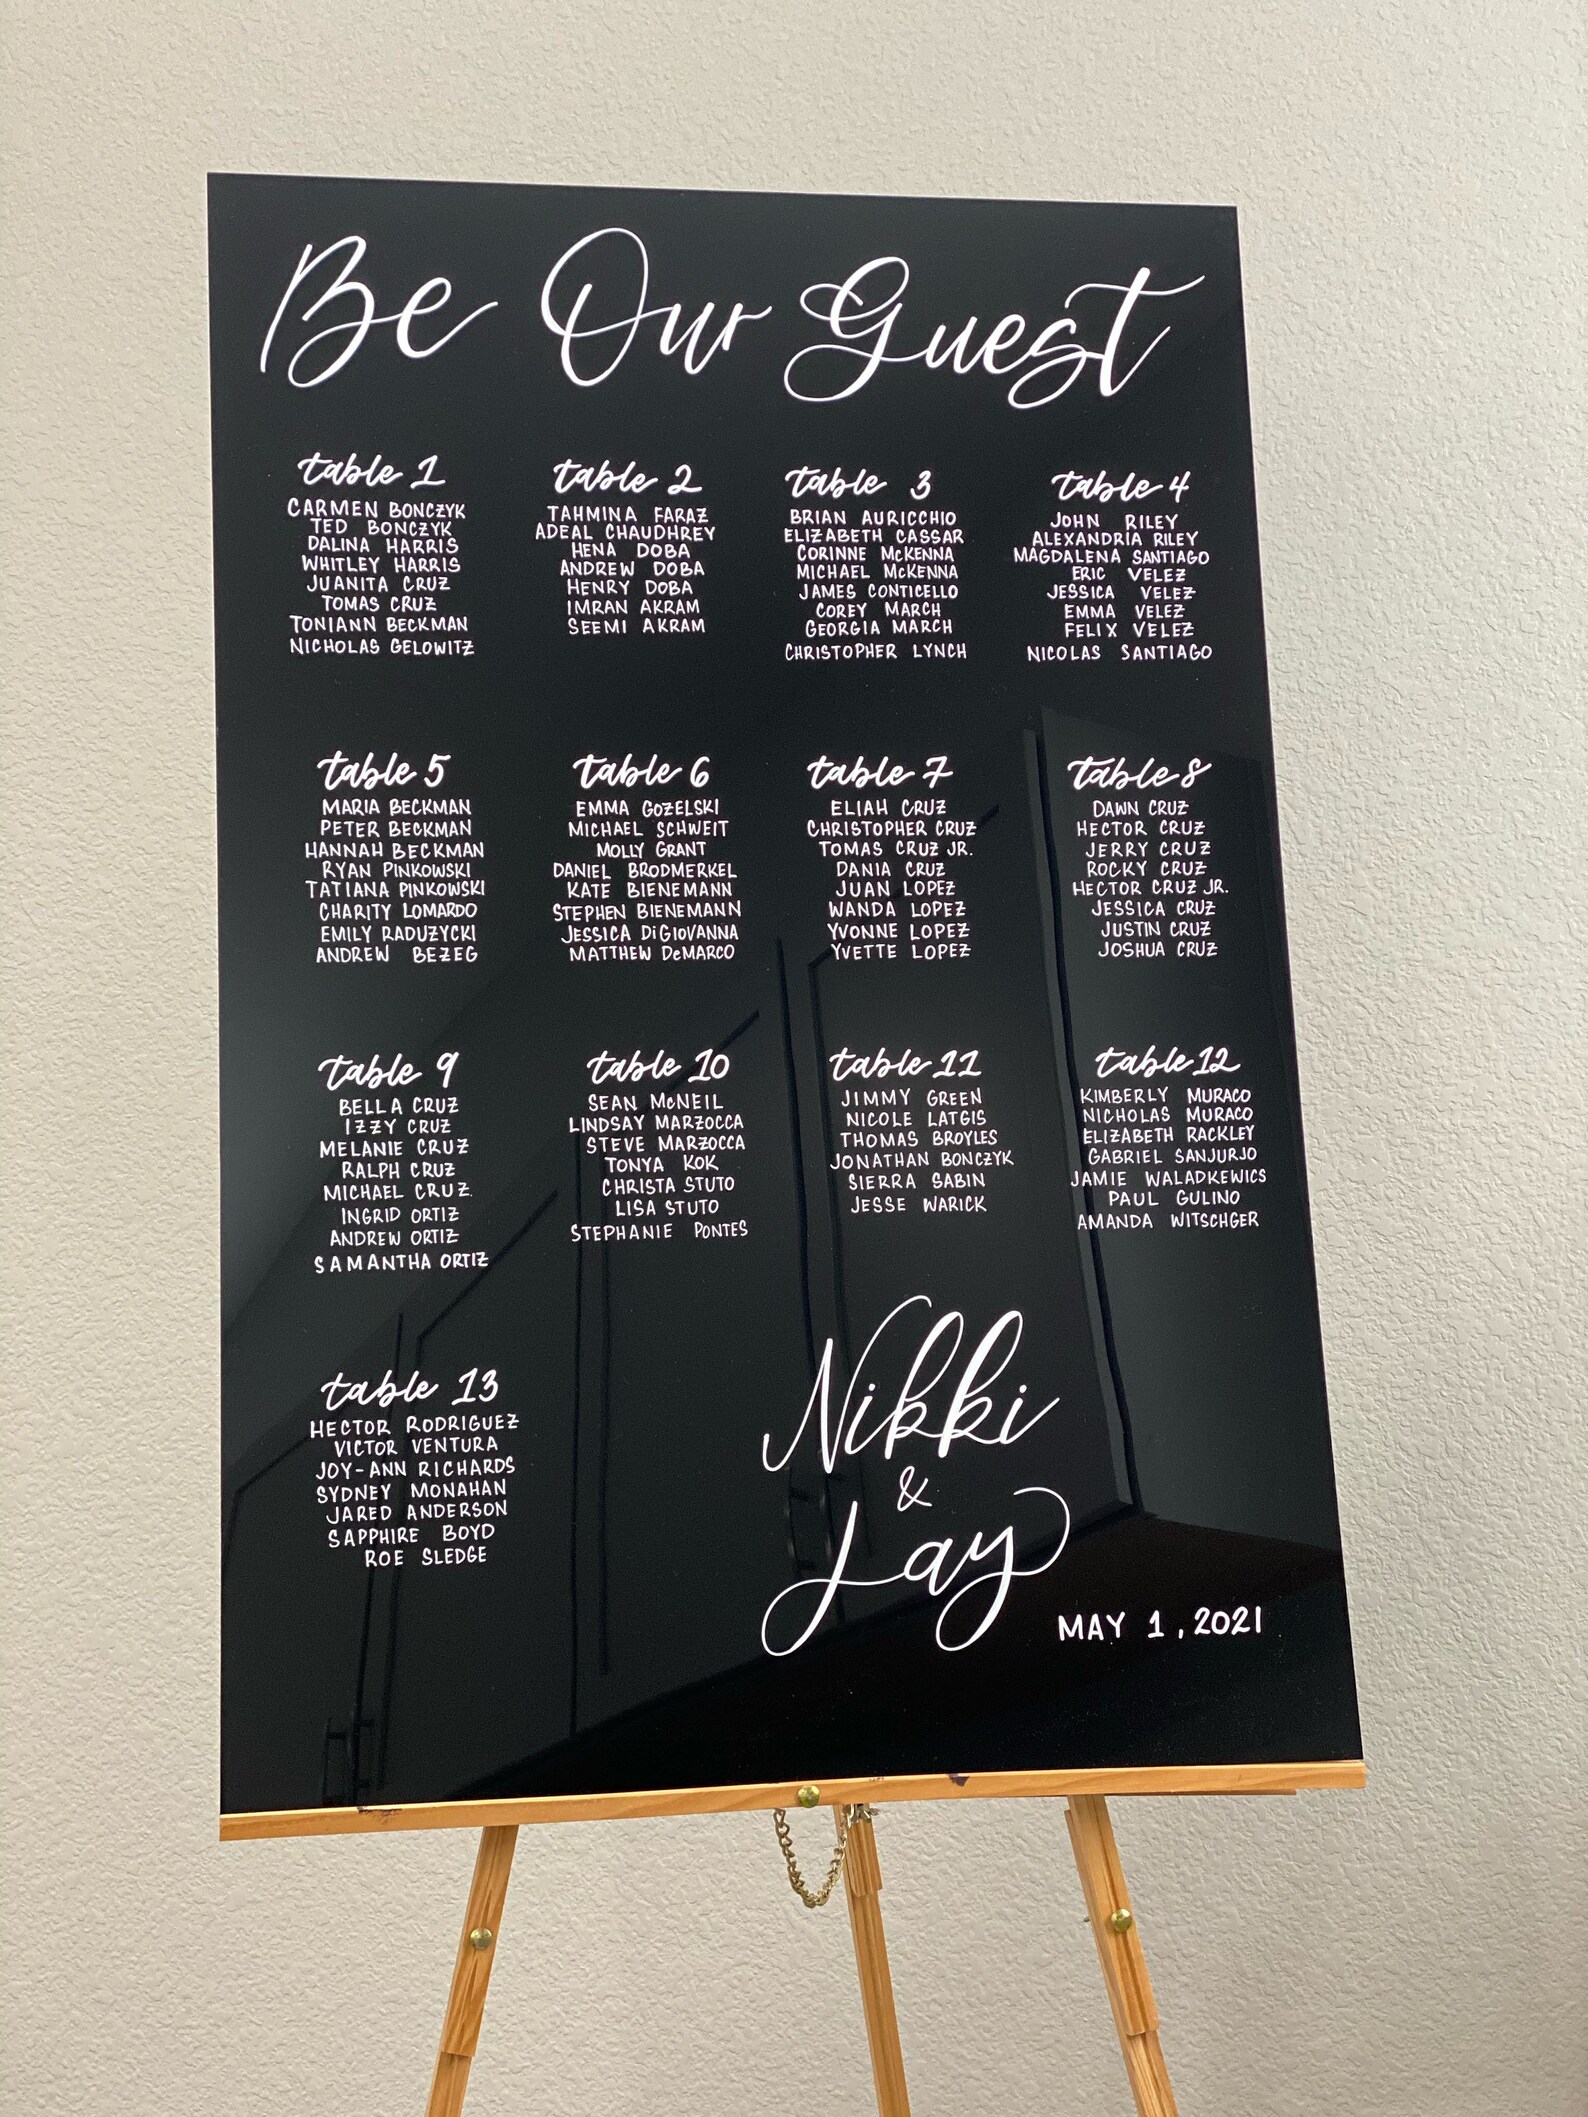 Be Our Guest
table 1
CARMEN BONCZYK
TED BONCZYK
DALINA HARRIS
WHITLEY HARRIS
JUANITA CRUZ
TOMAS CRUZ
TONIANN BECKMAN
NICHOLAS GELOWITZ
table 2
TAHMINA FARAZ
ADEAL CHAUDHREY
HENA DOBA
ANDREW DOBA
HENRY DOBA
IMRAN AKRAM
SEEMI AKRAM
table 3
BRIAN AURICCHIO
ELIZABETH CASSAR
CORINNE McKENNA
MICHAEL McKENNA
JAMES CONTICELLO
COREY MARCH
GEORGIA MARCH
CHRISTOPHER LYNCH
table 4
JOHN RILEY
ALEXANDRIA RILEY
MAGDALENA SANTIAGO
ERIC VELEZ
JESSICA VELEZ
EMMA VELEZ
FELIX VELEZ
NICOLAS SANTIAGO
table 5
MARIA BECKMAN
PETER BECKMAN
HANNAH BECKMAN
RYAN PINKOWSKI
TATIANA PINKOWSKI
CHARITY LOMARDO
EMILY RADUZYCKI
ANDREW BEZEG
table 6
EMMA GOZELSKI
MICHAEL SCHWEIT
MOLLY GRANT
DANIEL BRODMERKEL
KATE BIENEMANN
STEPHEN BIENEMANN
JESSICA DiGIOVANNA
MATTHEW DeMARCO
table 7
ELIAH CRUZ
CHRISTOPHER CRUZ
TOMAS CRUZ JR.
DANIA CRUZ
JUAN LOPEZ
WANDA LOPEZ
YVONNE LOPEZ
YVETTE LOPEZ
table 8
DAWN CRUZ
HECTOR CRUZ
JERRY CRUZ
ROCKY CRUZ
HECTOR CRUZ JR.
JESSICA CRUZ
JUSTIN CRUZ
JOSHUA CRUZ
table 9
BELLA CRUZ
IZZY CRUZ
MELANIE CRUZ
RALPH CRUZ
MICHAEL CRUZ
INGRID ORTIZ
ANDREW ORTIZ
SAMANTHA ORTIZ
table 10
SEAN McNEIL
LINDSAY MARZOCCA
STEVE MARZOCCA
TONYA KOK
CHRISTA STUTO
LISA STUTO
STEPHANIE PONTES
table 11
JIMMY GREEN
NICOLE LATGIS
THOMAS BROYLES
JONATHAN BONCZYK
SIERRA SABIN
JESSE WARICK
table 12
KIMBERLY MURACO
NICHOLAS MURACO
ELIZABETH RACKLEY
GABRIEL SANJURJO
JAMIE WALADKEWICS
PAUL GULINO
AMANDA WITSCHGER
table 13
HECTOR RODRIGUEZ
VICTOR VENTURA
JOY-ANN RICHARDS
SYDNEY MONAHAN
JARED ANDERSON
SAPPHIRE BOYD
ROE SLEDGE
Nikki
&
Jay
MAY 1, 2021